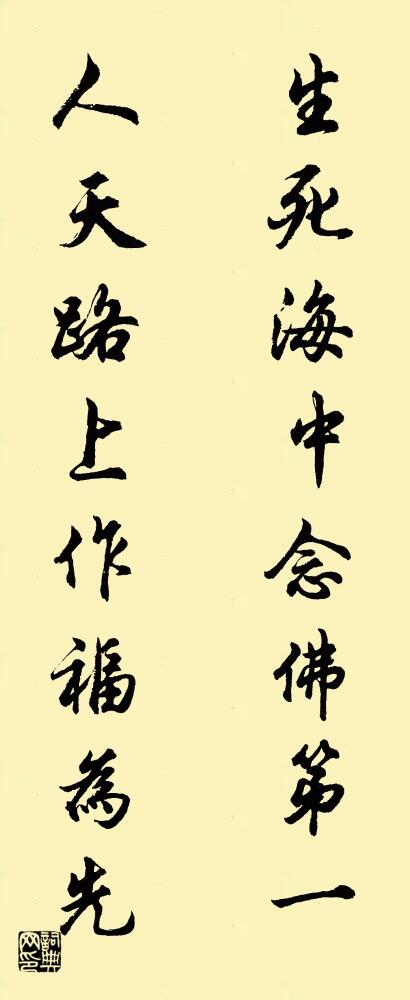 生死海中念佛第一
人天路上作福為先
詞典網印